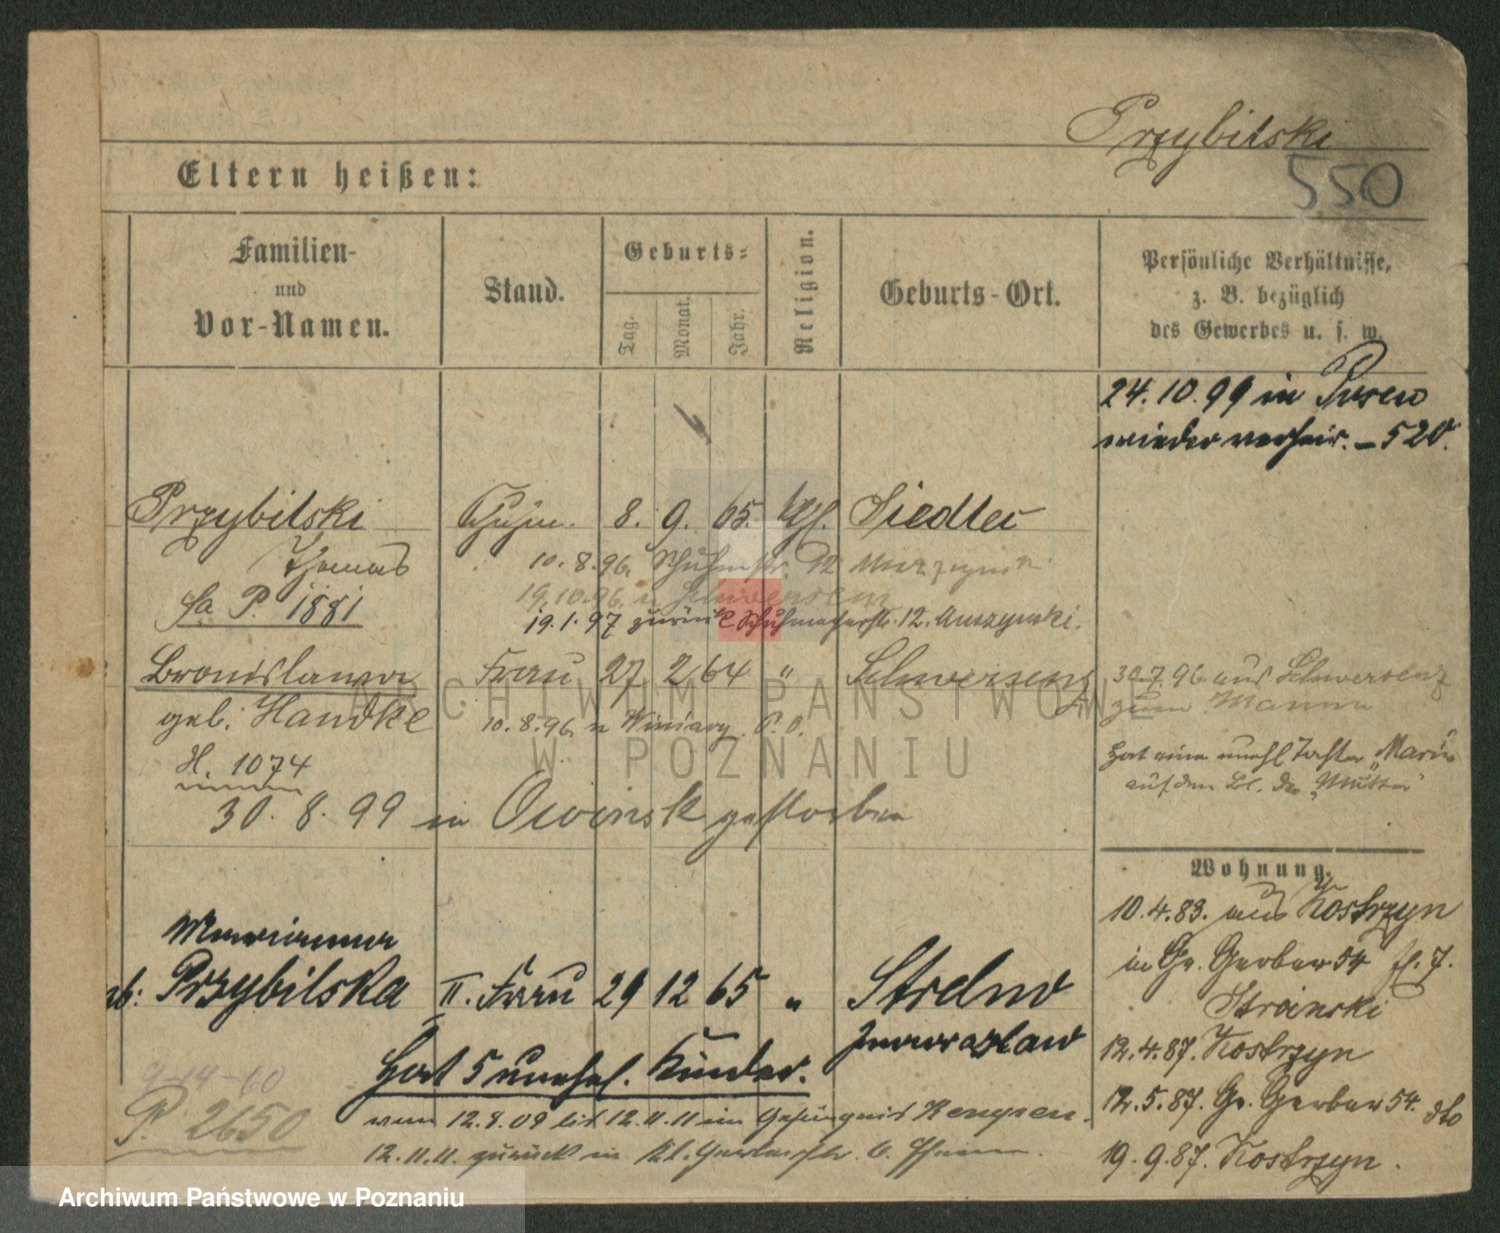 Przybilski
550
Eltern heißen:
Familien-
und
Vor-Namen.
Stand.
Geburts-
Tag.
Monat.
Jahr.
Religion.
Geburts-Ort.
Persönliche Verhältnisse,
z. B. bezüglich
des Gewerbes u. s. w.
24.10.99 in Posen
wieder verheir. – 520.
Przybilski Schuhm. 8. 9. 65. kath. Siedlec
Thomas
10.8.96. Schuhmstr. 12
fa. P. 1881
19.10.96. n Schwersenz
19.1.97 zurück Schuhmacherstr. 12. Muszynski.
Bronislawa Frau 27 2 64 " Schwersenz
geb. Handke
10.8.96. n Winiary P. O.
H. 1074
30.8.99 in Owinsk gestorben
30.7.96. aus Schwersenz
zum Manne
Hat eine unehl Tochter „Marie"
auf dem Bl. der „Mutter"
ARCHIWUM PAŃSTWOWE
W POZNANIU
Wohnung.
10.4.83. aus Kostrzyn
in Gr. Gerber 54 fl. 7.
Stroinski
12.4.87. Kostrzyn
12.5.87. Gr. Gerber 54. dto
19.9.87. Kostrzyn.
Marianna
geb: Przybilska II. Frau 29 12 65 " Strelno
Inowrazlaw
Hat 5 unehel. Kinder.
P. 2650
vom 12.8.09 bis 12.11.11 im Gefängnis
12.11.11. zurück in Kl. Gerberstr. 6.
Archiwum Państwowe w Poznaniu